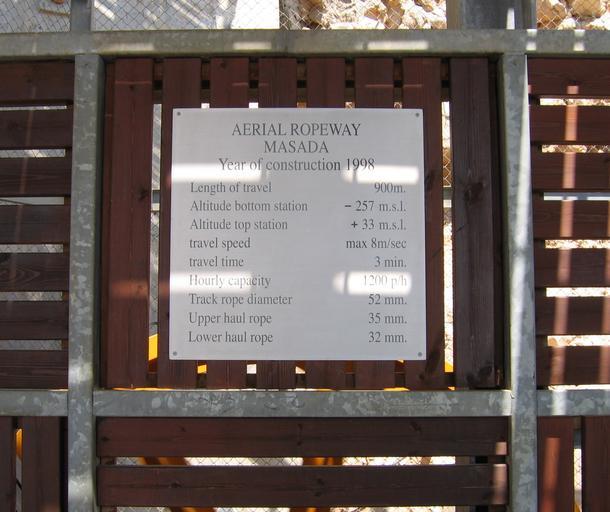 AERIAL ROPEWAY
MASADA
Year of construction 1998
Length of travel 900m.
Altitude bottom station - 257 m.s.l.
Altitude top station + 33 m.s.l.
travel speed max 8m/sec
travel time 3 min.
Hourly capacity 1200 p/h
Track rope diameter 52 mm.
Upper haul rope 35 mm.
Lower haul rope 32 mm.